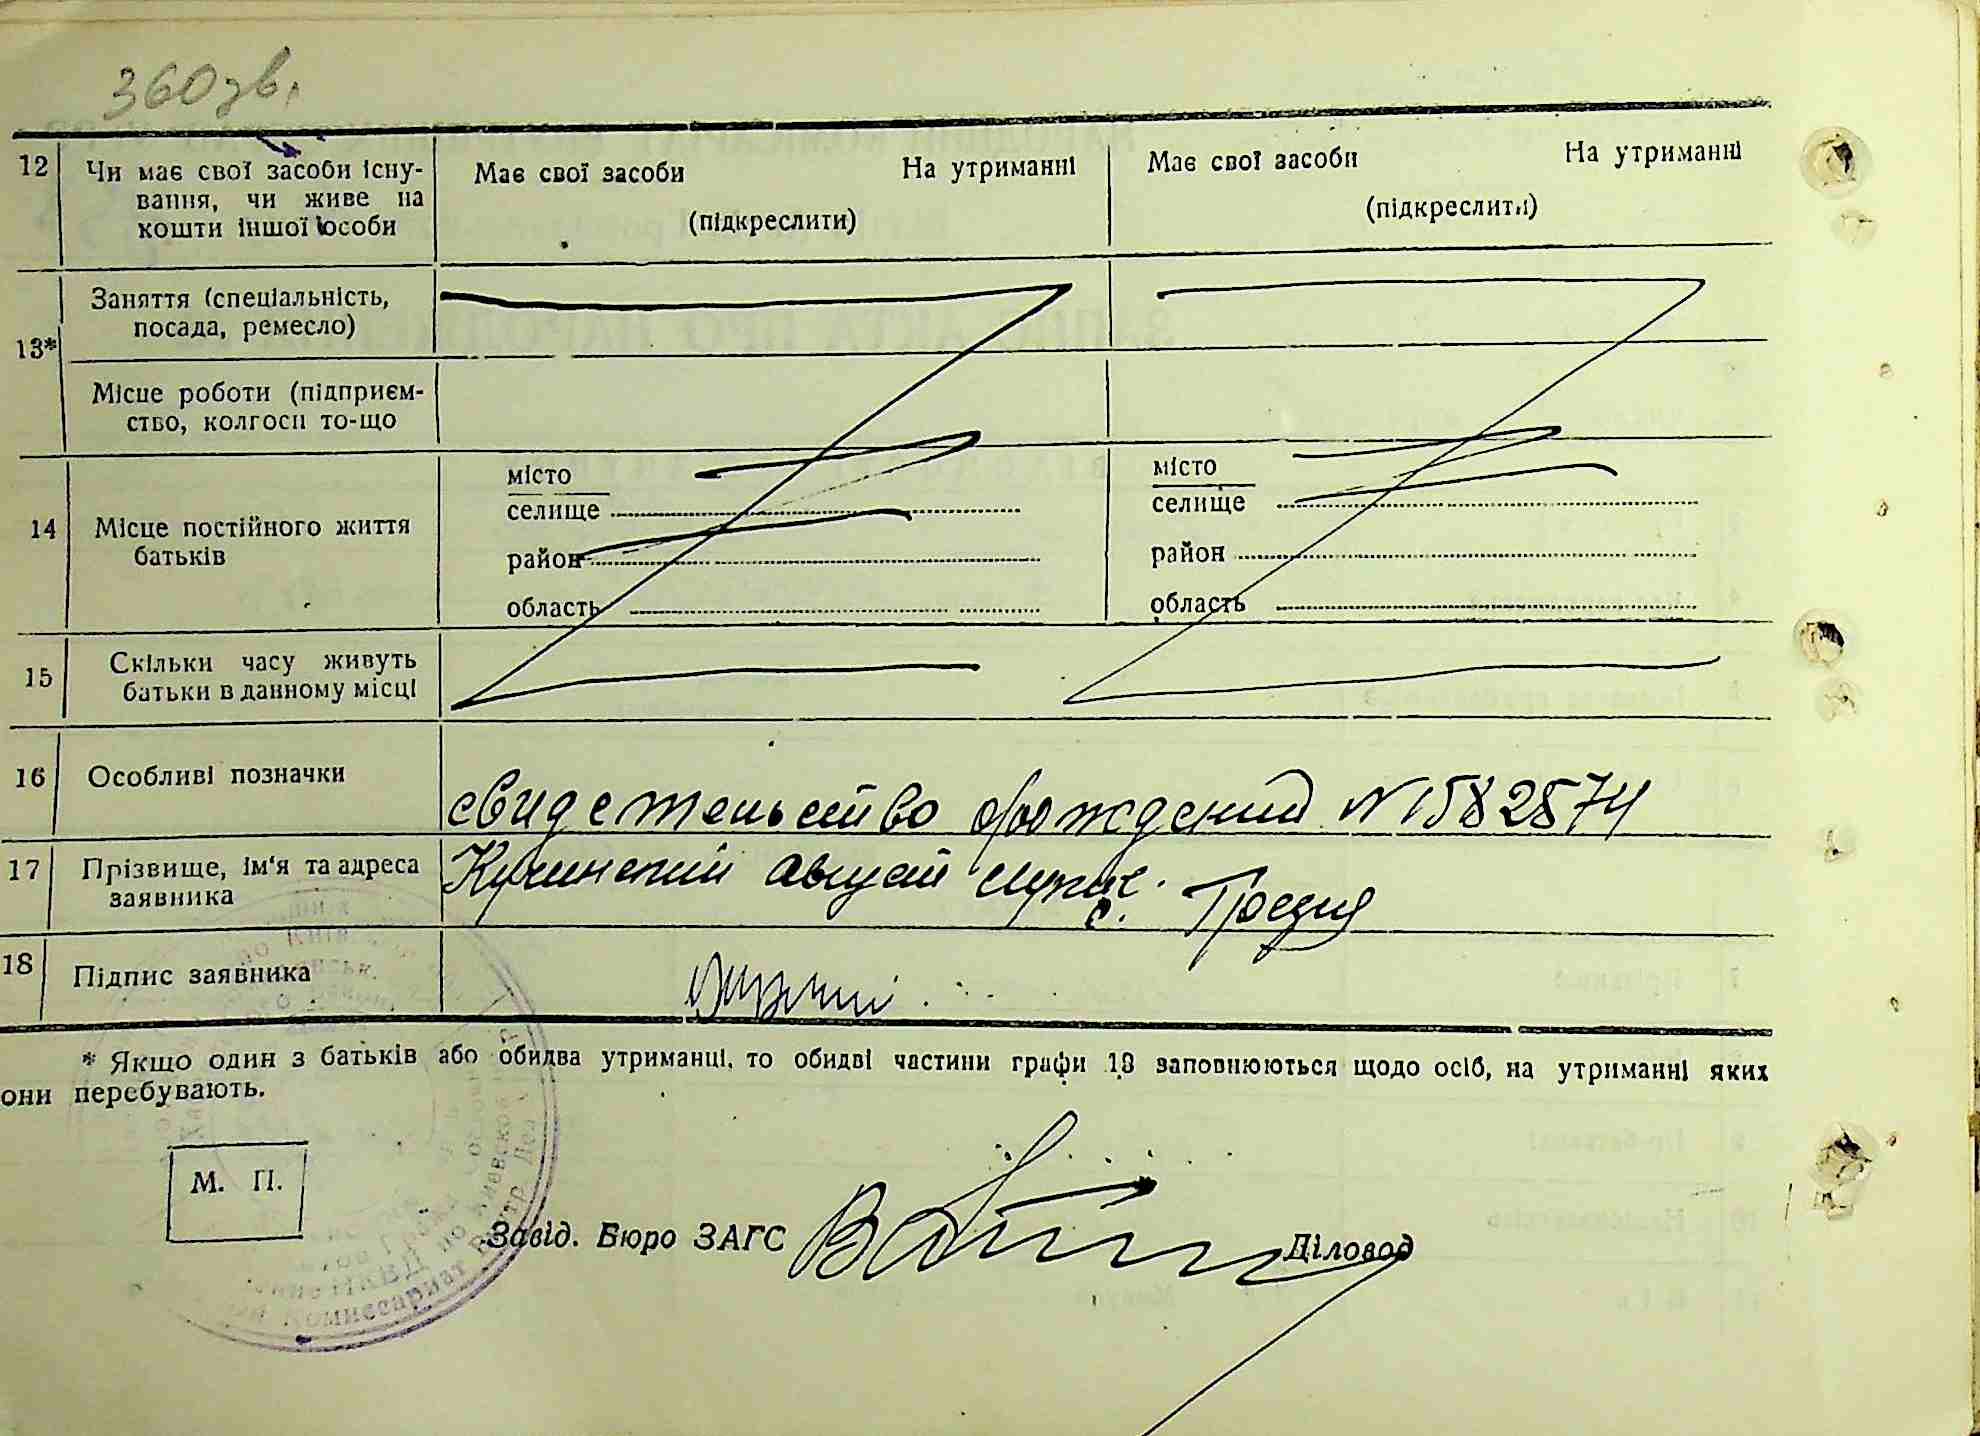 360 зв.
12 Чи має свої засоби існу- Має свої засоби На утриманні Має свої засоби На утриманні
вання, чи живе на (підкреслити) (підкреслити)
кошти іншої особи
13* Заняття (спеціальність,
посада, ремесло)
Місце роботи (підприєм-
ство, колгосп то-що
14 Місце постійного життя
батьків
місто місто
селище селище
район район
область область
15 Скільки часу живуть
батьки в данному місці
16 Особливі позначки свидетельство о рождении №1582574
17 Прізвище, ім'я та адреса
заявника
Кучинский с.
18 Підпис заявника
* Якщо один з батьків або обидва утриманці, то обидві частини графи 13 заповнюються щодо осіб, на утриманні яких
они перебувають.
М. П.
Завід. Бюро ЗАГС Діловод